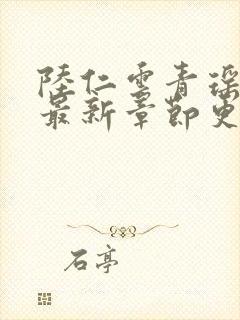 陸仁雲青瑶
最新章節更
石亭